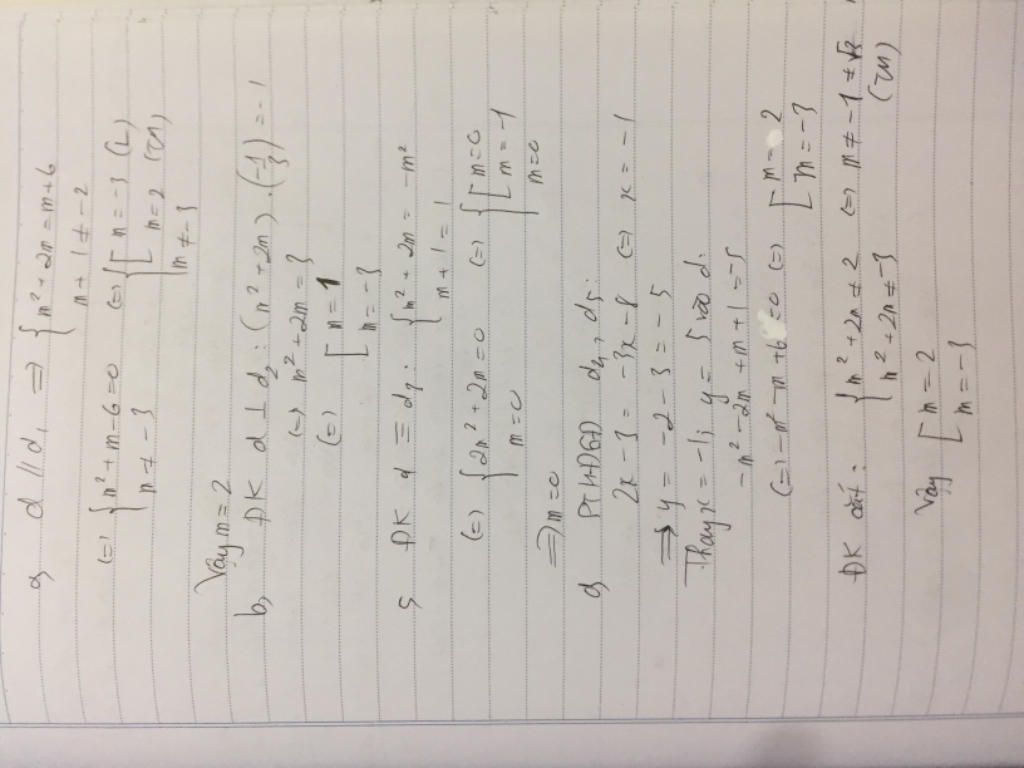 a, d // d₁ => { m² + 2m = m + 6
m + 1 ≠ -2
(=) { m² + m - 6 = 0 (=) { [ m = -3 (L)
m ≠ -3 [ m = 2 (TM)
m ≠ -3
Vậy m = 2
b, ĐK d ⊥ d₂ : (m² + 2m) . (-1/3) = -1
(=) m² + 2m = 3
(=) [ m = 1
[ m = -3
ĐK d ≡ d₃ : { m² + 2m = -m²
m + 1 = 1
(=) { 2m² + 2m = 0 (=) { [ m = 0
m = 0 [ m = -1
m = 0
=> m = 0
PTHĐGĐ d₄, d₅ :
2x - 3 = -3x - 8 (=) x = -1
=> y = -2 - 3 = -5
Thay x = -1; y = 5 vào d.
-m² - 2m + m + 1 = -5
(=) -m² - m + 6 = 0 (=) [ m = 2
[ m = -3
ĐK cắt : { m² + 2m ≠ 2 (=) m ≠ -1 ±
m² + 2m ≠ -3 (TM)
Vậy [ m = 2
[ m = -3